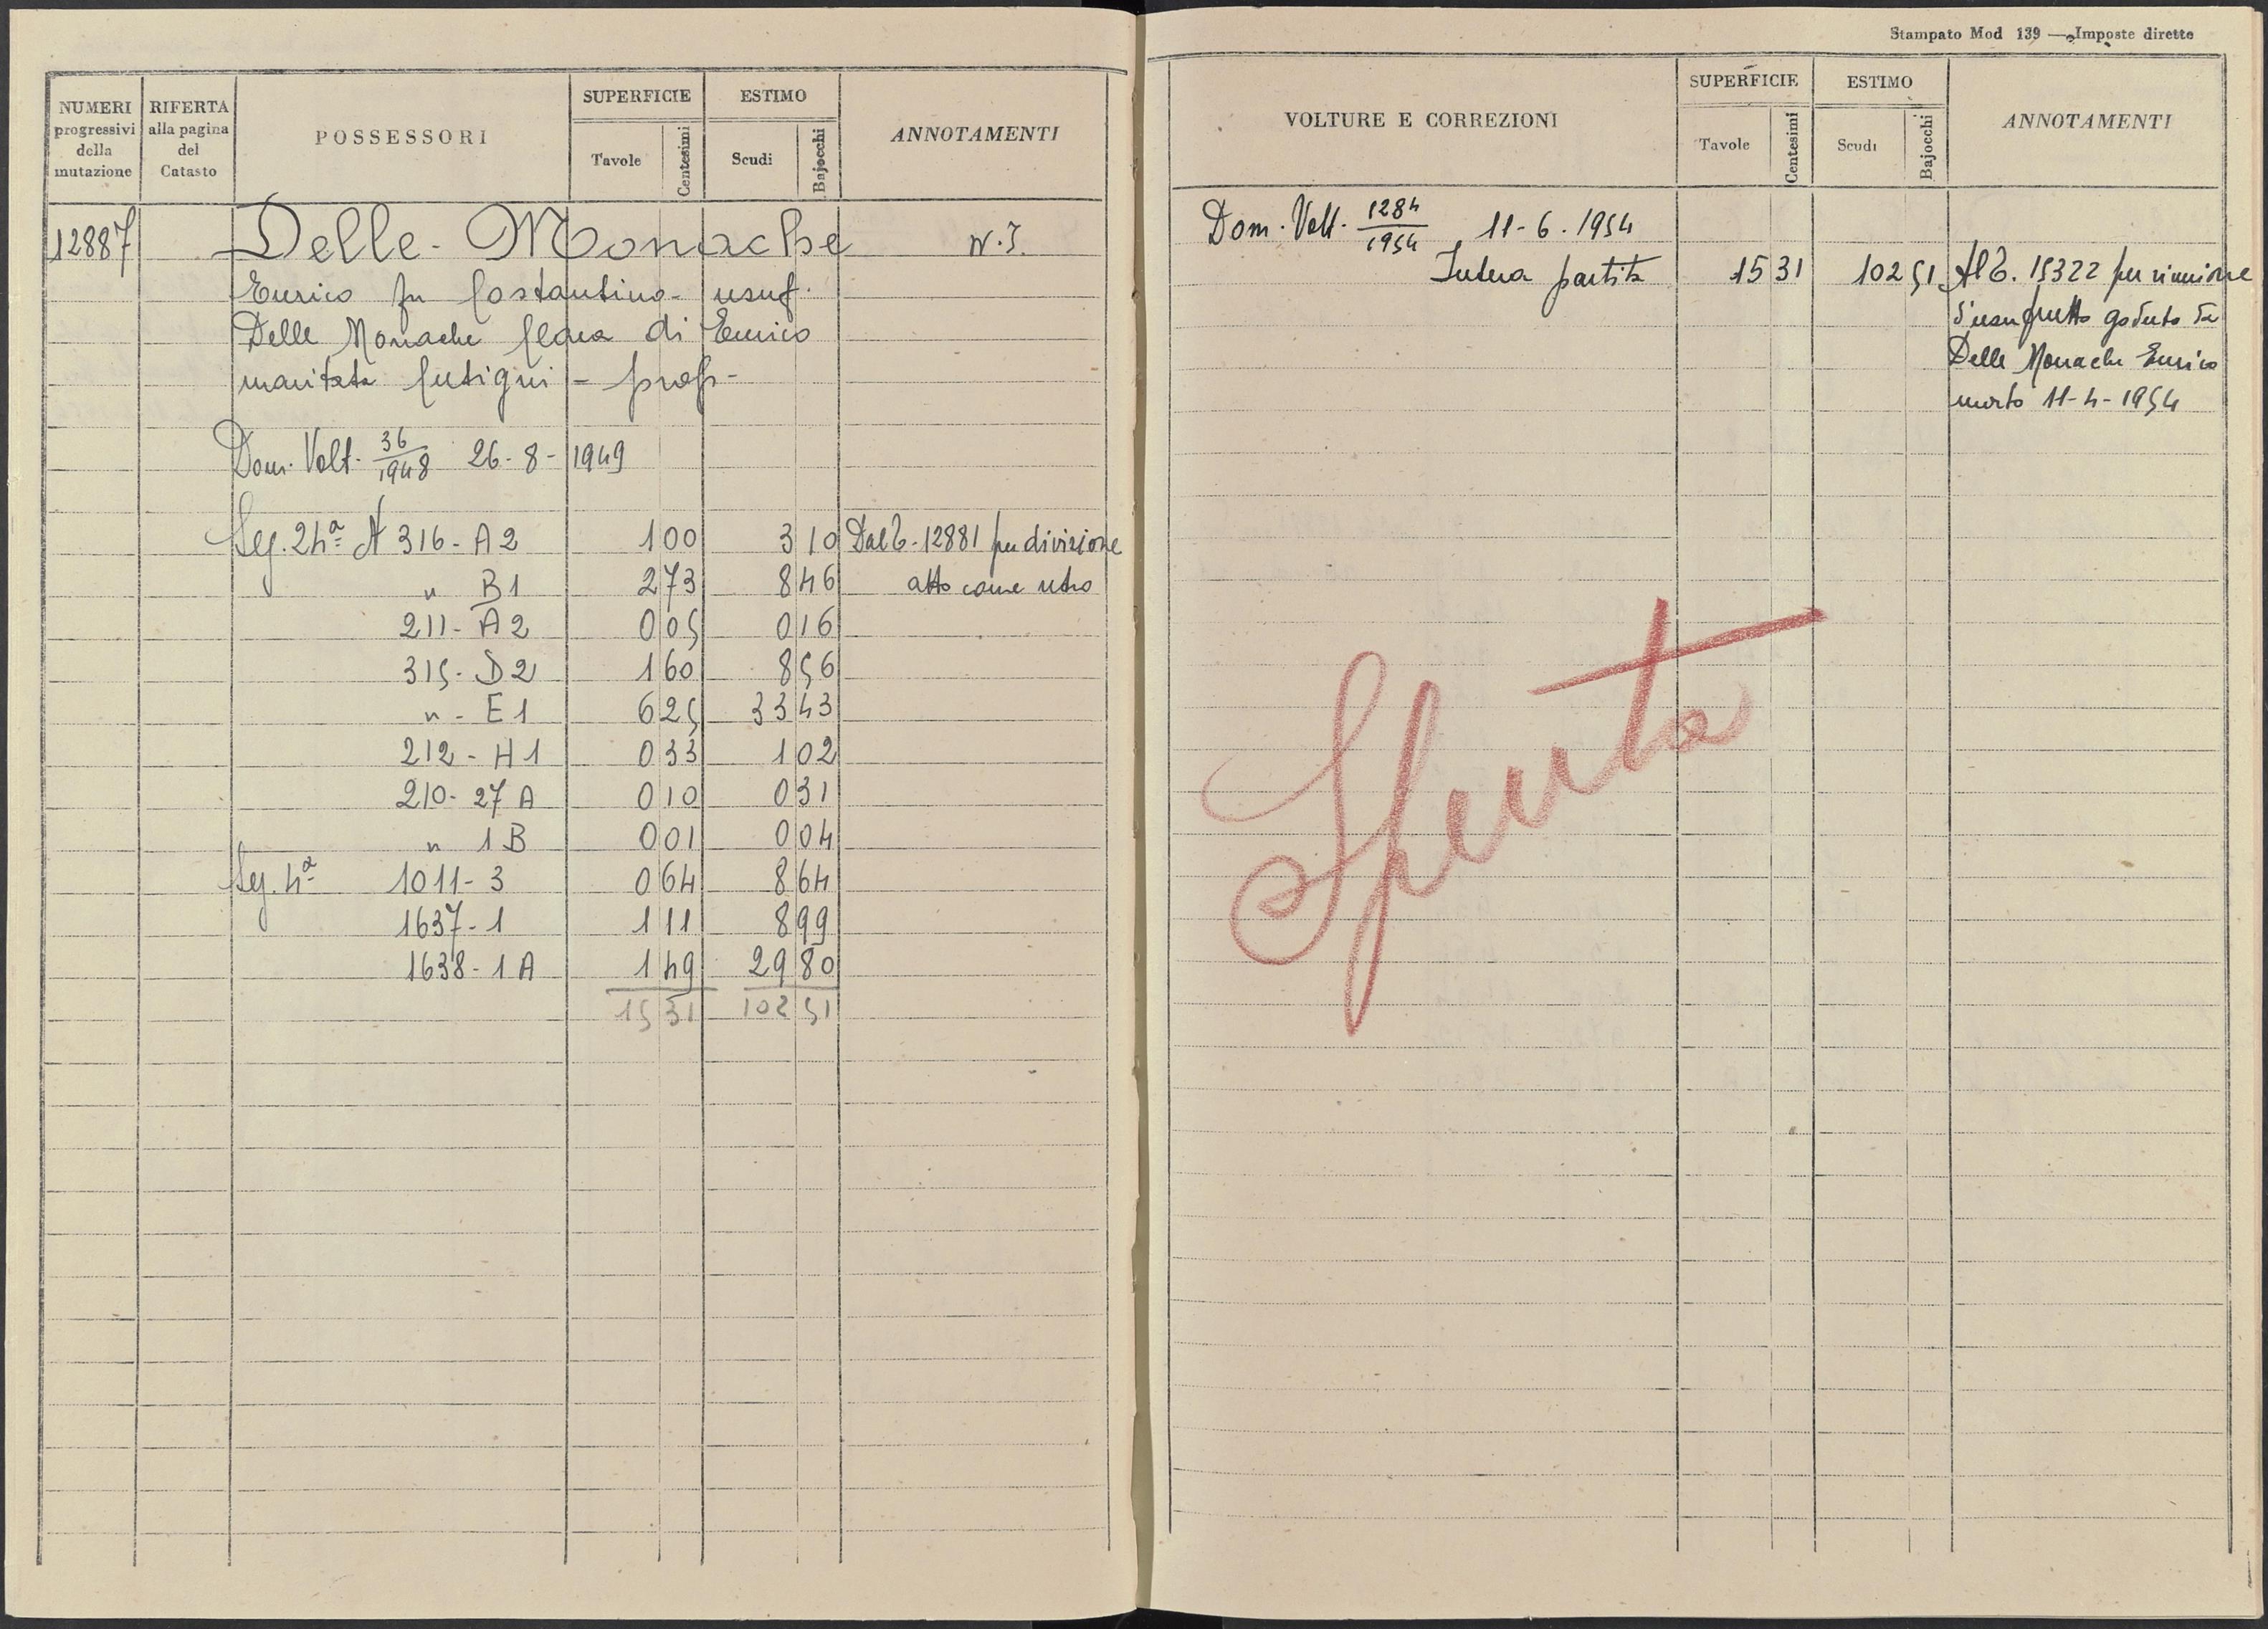 NUMERI progressivi della mutazione | RIFERTA alla pagina del Catasto | POSSESSORI | SUPERFICIE Tavole Centesimi | ESTIMO Scudi Bajocchi | ANNOTAMENTI
12887 Delle Monache N.I.
Enrico fu Costantino - usuf.
Delle Monache Clara di Enrico
maritata Cutigni - prop -
Dom. Volt. 36/1948 26-8-1949
Seg. 24ª N 316 - A2 1 00 3 10 Dal T. 12881 per divisione
" B1 2 73 8 46 atto come retro
211 - A2 0 05 0 16
315 - D2 1 60 8 56
" - E1 6 25 33 43
212 - H1 0 33 1 02
210 - 27 A 0 10 0 31
" 1 B 0 01 0 04
Seg. 4ª 1011 - 3 0 64 8 64
1637 - 1 1 11 8 99
1638 - 1 A 1 49 29 80
15 31 102 51
Stampato Mod 139 — Imposte dirette
VOLTURE E CORREZIONI | SUPERFICIE Tavole Centesimi | ESTIMO Scudi Bajocchi | ANNOTAMENTI
Dom. Volt. 1284/1954 11-6-1954
Intera partita 15 31 102 51 Al T. 15322 per riunione
d'usufrutto goduto da
Delle Monache Enrico
morto 11-4-1954
Spenta